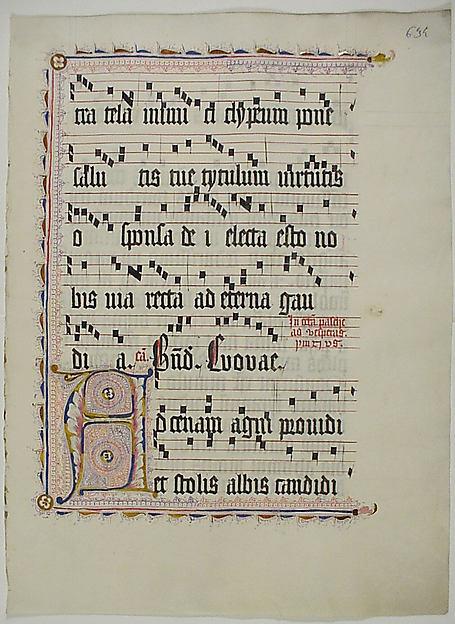 634
tra tela inimi ci chpristum pone
salu tis tue tytulum uirtutis
o sponsa de i electa esto no
bis uia recta ad eterna gau
di a. ca Bnd. Evovae.
In octa pasche
ad vesperas
ymnus
Ad cenam agni prouidi
et stolis albis candidi